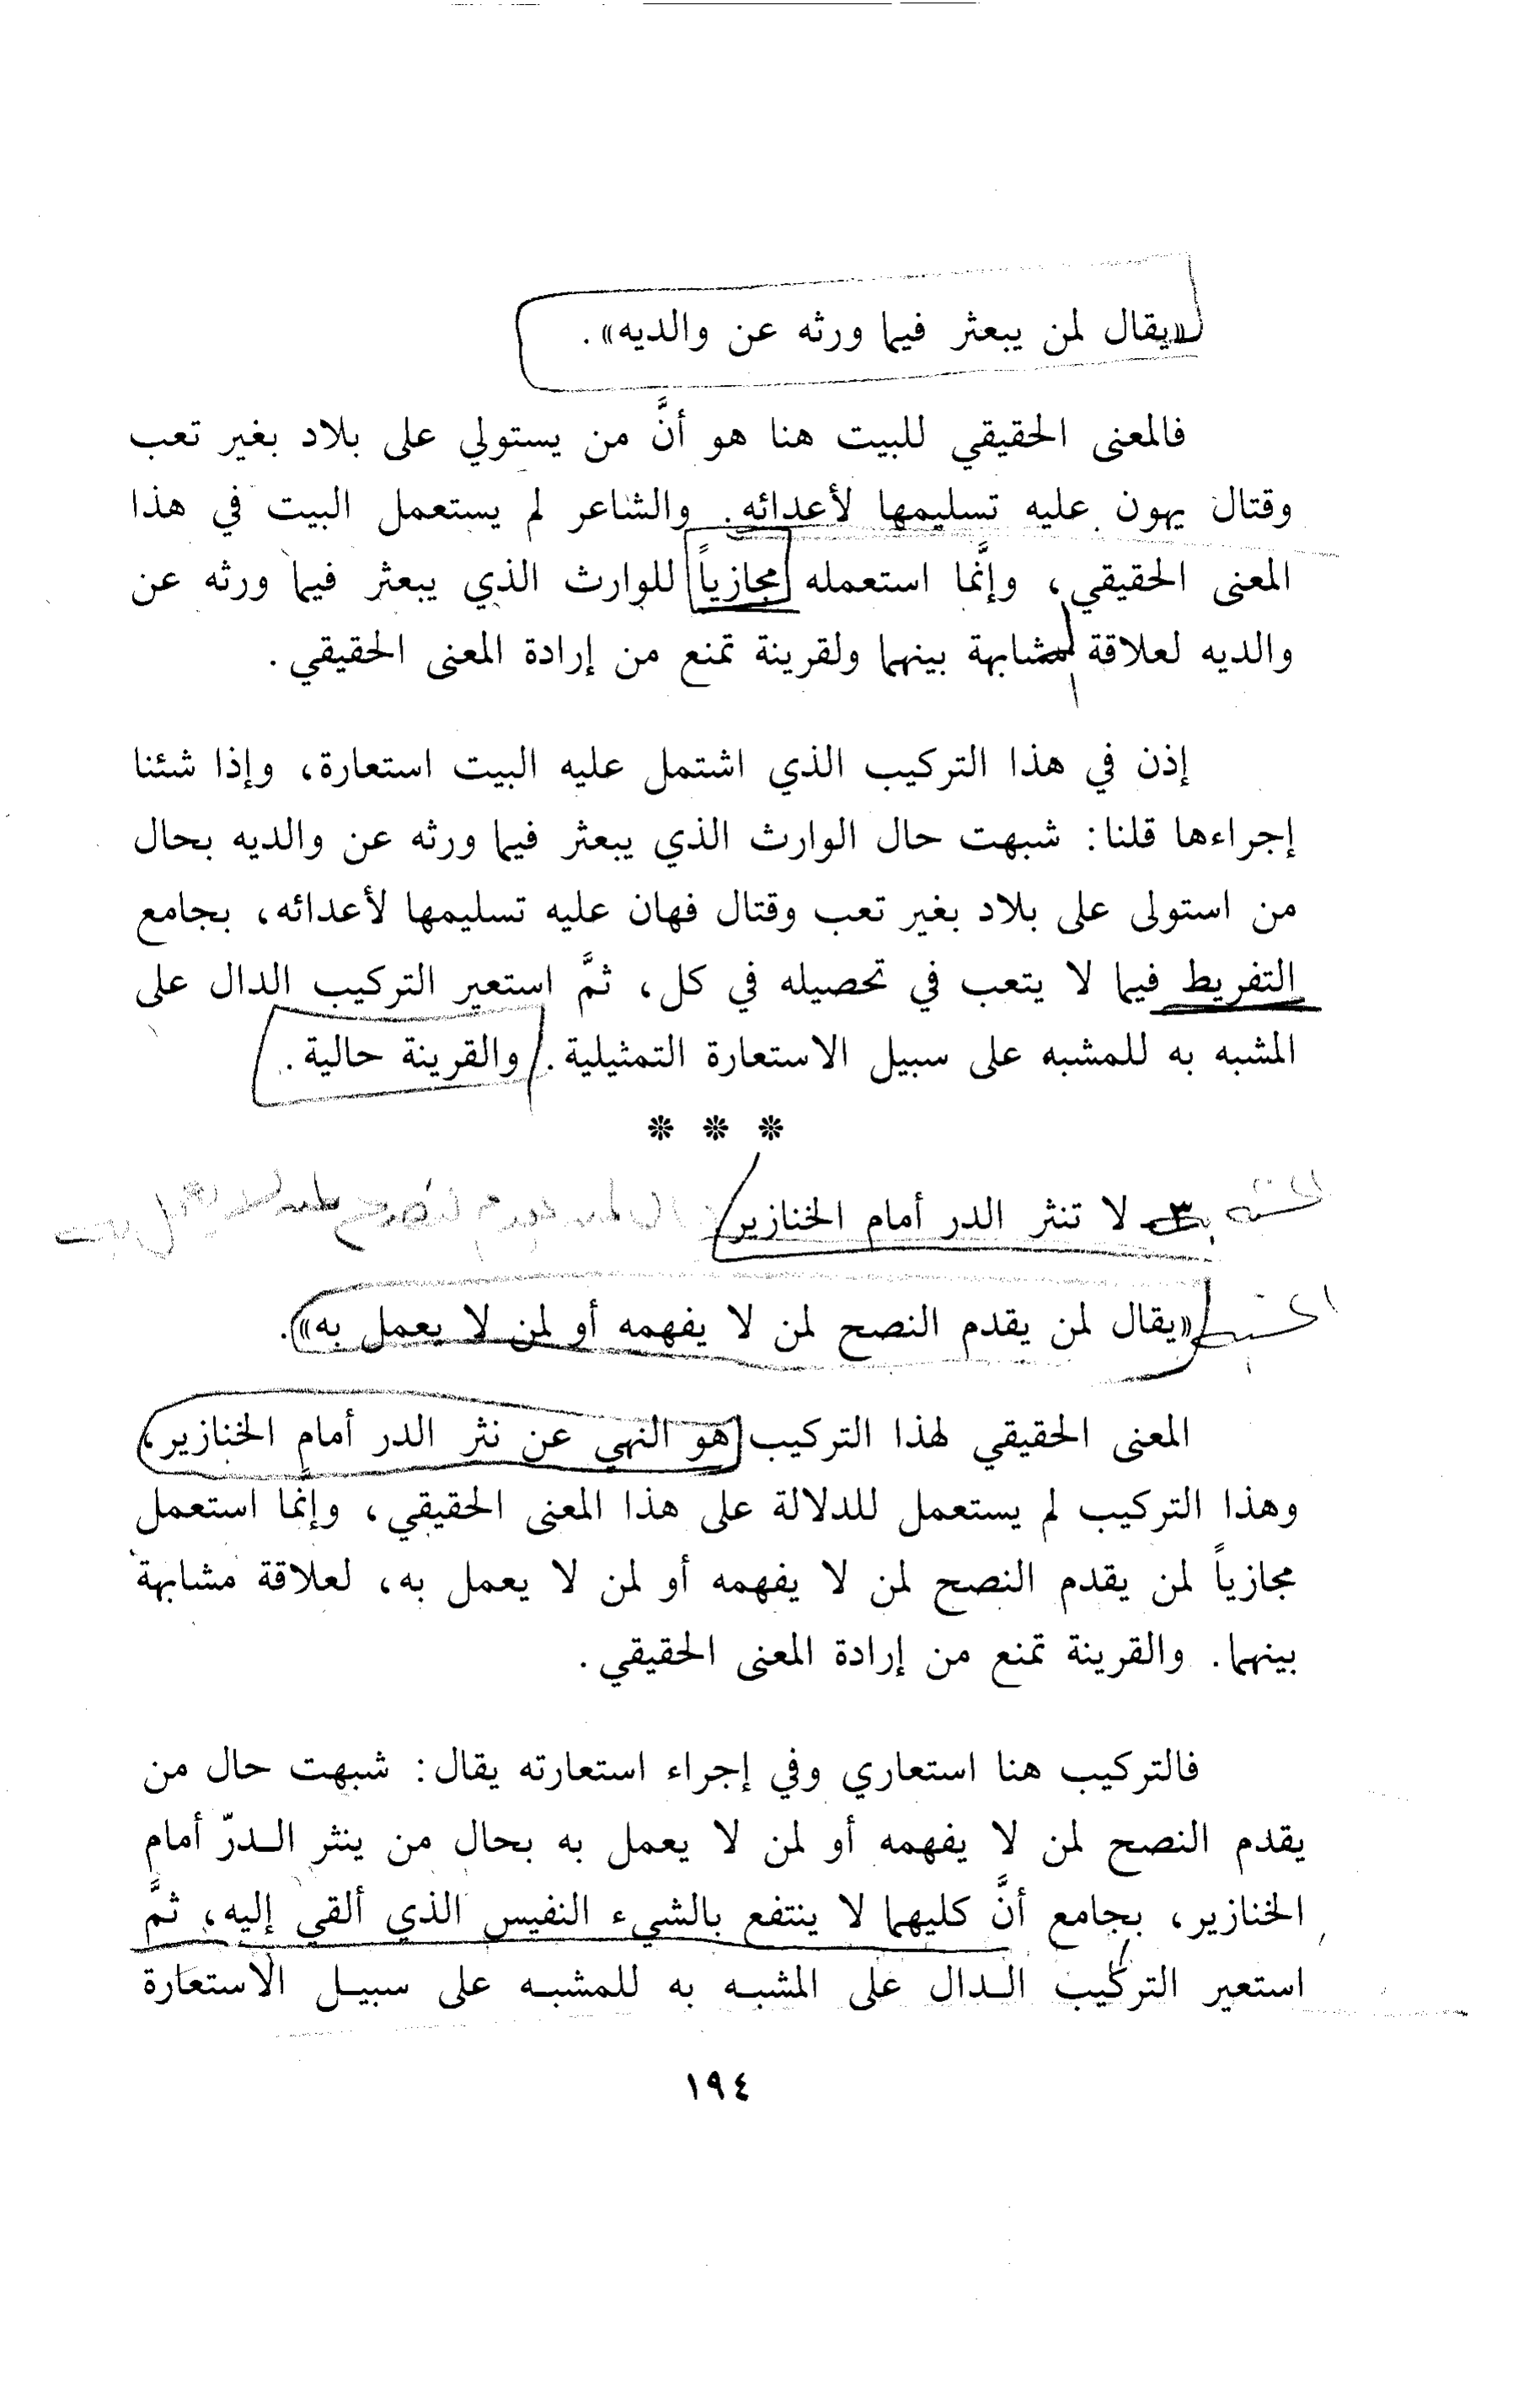 «يقال لمن يبعثر فيما ورثه عن والديه».
فالمعنى الحقيقي للبيت هنا هو أنَّ من يستولي على بلاد بغير تعب
وقتال يهون عليه تسليمها لأعدائه. والشاعر لم يستعمل البيت في هذا
المعنى الحقيقي، وإنَّما استعمله مجازياً للوارث الذي يبعثر فيما ورثه عن
والديه لعلاقة مشابهة بينهما ولقرينة تمنع من إرادة المعنى الحقيقي.
إذن في هذا التركيب الذي اشتمل عليه البيت استعارة، وإذا شئنا
إجراءها قلنا: شبهت حال الوارث الذي يبعثر فيما ورثه عن والديه بحال
من استولى على بلاد بغير تعب وقتال فهان عليه تسليمها لأعدائه، بجامع
التفريط فيما لا يتعب في تحصيله في كل، ثمَّ استعير التركيب الدال على
المشبه به للمشبه على سبيل الاستعارة التمثيلية. والقرينة حالية.
* * *
المشبه به
٣ - لا تنثر الدر أمام الخنازير
المشبه
«يقال لمن يقدم النصح لمن لا يفهمه أو لمن لا يعمل به».
المعنى الحقيقي لهذا التركيب هو النهي عن نثر الدر أمام الخنازير،
وهذا التركيب لم يستعمل للدلالة على هذا المعنى الحقيقي، وإنَّما استعمل
مجازياً لمن يقدم النصح لمن لا يفهمه أو لمن لا يعمل به، لعلاقة مشابهة
بينهما. والقرينة تمنع من إرادة المعنى الحقيقي.
فالتركيب هنا استعاري وفي إجراء استعارته يقال: شبهت حال من
يقدم النصح لمن لا يفهمه أو لمن لا يعمل به بحال من ينثر الـدرّ أمام
الخنازير، بجامع أنَّ كليهما لا ينتفع بالشيء النفيس الذي ألقي إليه، ثمَّ
استعير التركيب الـدال على المشبـه به للمشبـه على سبيـل الاستعارة
١٩٤